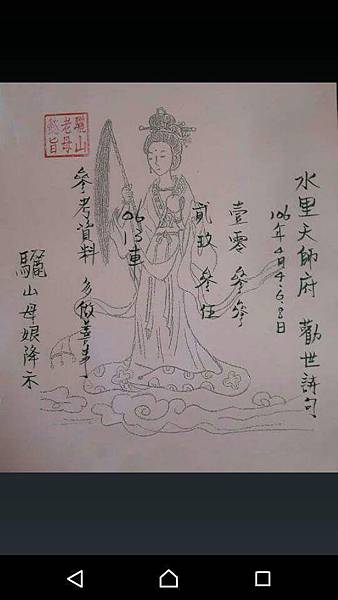 水里天師府 勸世詩句
106年4月4.6.8日
壹零 參參
貳玖 參伍
參考資料 多做善事
驪山母娘降示
驪山
老母
懿旨